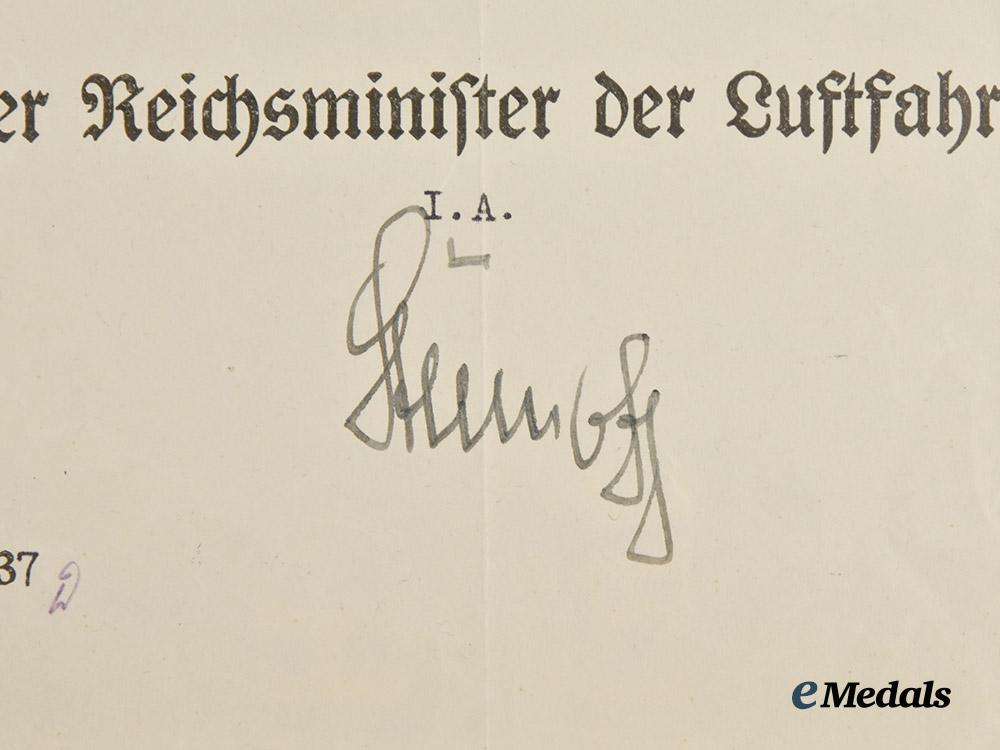 er Reichsminister der Luftfahr
I.A.
Stumpff
37
eMedals